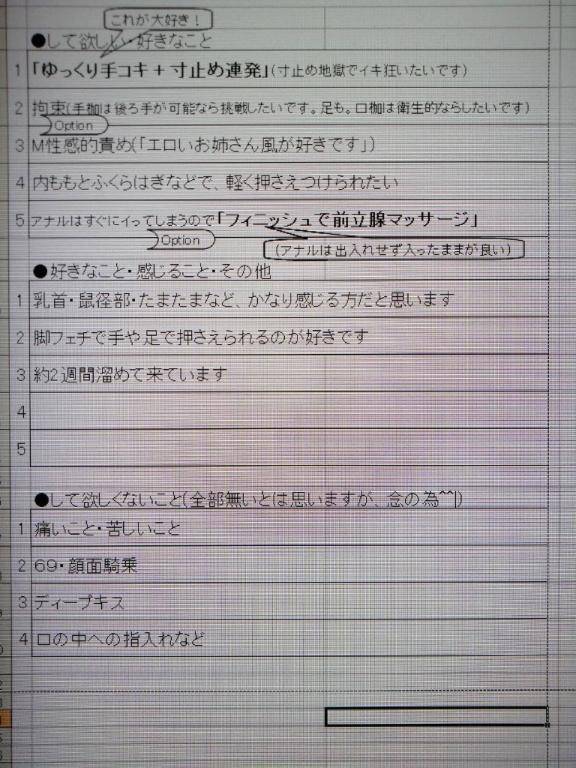 これが大好き！
●して欲しい・好きなこと
1 「ゆっくり手コキ＋寸止め連発」(寸止め地獄でイキ狂いたいです)
2 拘束(手枷は後ろ手が可能なら挑戦したいです。足も。口枷は衛生的ならしたいです)
Option
3 M性感的責め(「エロいお姉さん風が好きです」)
4 内ももとふくらはぎなどで、軽く押さえつけられたい
5 アナルはすぐにイってしまうので「フィニッシュで前立腺マッサージ」
Option
(アナルは出入れせず入ったままが良い)
●好きなこと・感じること・その他
1 乳首・鼠径部・たまたまなど、かなり感じる方だと思います
2 脚フェチで手や足で押さえられるのが好きです
3 約2週間溜めて来ています
4
5
●して欲しくないこと(全部無いとは思いますが、念の為^^|)
1 痛いこと・苦しいこと
2 69・顔面騎乗
3 ディープキス
4 口の中への指入れなど